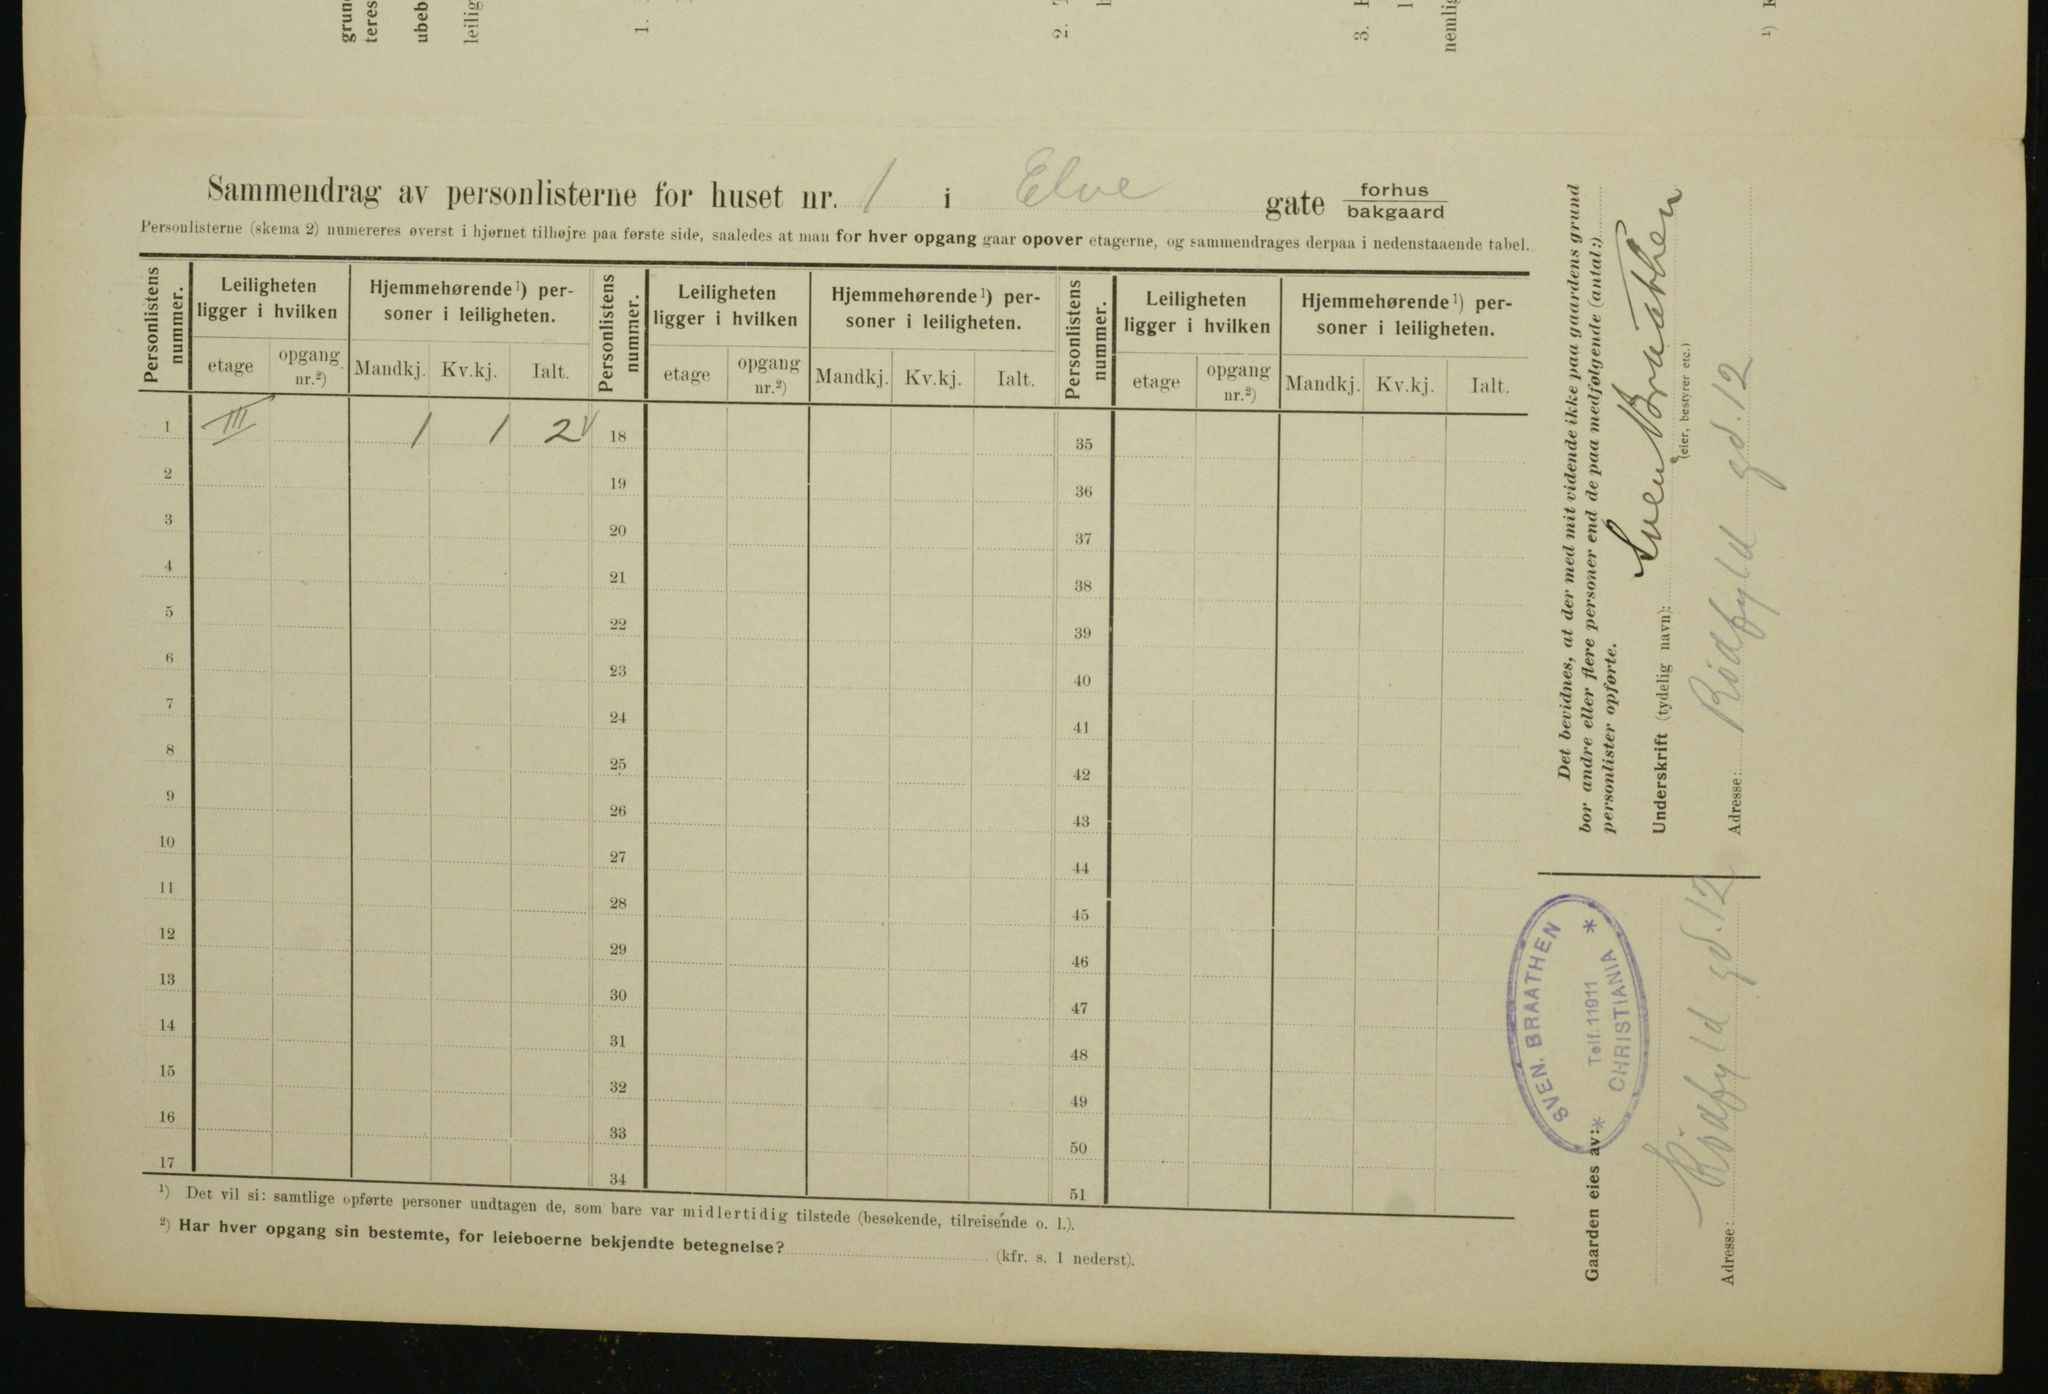 grun
teres
ubeb
leilig
1.
2.
3.
nemlig
¹)
Sammendrag av personlisterne for huset nr. 1 i Elve gate forhus
bakgaard
Personlisterne (skema 2) numereres øverst i hjørnet tilhøjre paa første side, saaledes at man for hver opgang gaar opover etagerne, og sammendrages derpaa i nedenstaaende tabel.
Personlistens nummer. Leiligheten ligger i hvilken Hjemmehørende¹) personer i leiligheten. Personlistens nummer. Leiligheten ligger i hvilken Hjemmehørende¹) personer i leiligheten. Personlistens nummer. Leiligheten ligger i hvilken Hjemmehørende¹) personer i leiligheten.
etage opgang nr.²) Mandkj. Kv.kj. Ialt. etage opgang nr.²) Mandkj. Kv.kj. Ialt. etage opgang nr.²) Mandkj. Kv.kj. Ialt.
1 III 1 1 2 18 35
2 19 36
3 20 37
4 21 38
5 22 39
6 23 40
7 24 41
8 25 42
9 26 43
10 27 44
11 28 45
12 29 46
13 30 47
14 31 48
15 32 49
16 33 50
17 34 51
¹) Det vil si: samtlige opførte personer undtagen de, som bare var midlertidig tilstede (besøkende, tilreisende o. l.).
²) Har hver opgang sin bestemte, for leieboerne bekjendte betegnelse? (kfr. s. 1 nederst).
Det bevidnes, at der med mit vidende ikke paa gaardens grund
bor andre eller flere personer end de paa medfølgende (antal:)
personlister opførte.
Underskrift (tydelig navn): Sven Braathen
(eier, bestyrer etc.)
Adresse: Rödfyld gd. 12
Gaarden eies av:
SVEN. BRAATHEN
Telf. 11911
CHRISTIANIA
Adresse: Rödfyld gd. 12